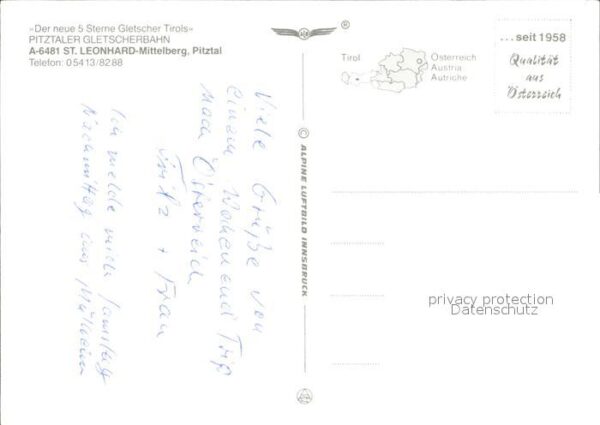 »Der neue 5 Sterne Gletscher Tirols«
PITZTALER GLETSCHERBAHN
A-6481 ST. LEONHARD-Mittelberg, Pitztal
Telefon: 05413/8288
Viele Grüße von
einem Wochenend Trip
nach Österreich
Fritz + Frau
Ich melde mich Samstag
Nachmittag aus Mülheim
© ALPINE LUFTBILD INNSBRUCK
Tirol
Österreich
Austria
Autriche
...seit 1958
Qualität
aus
Österreich
privacy protection
Datenschutz